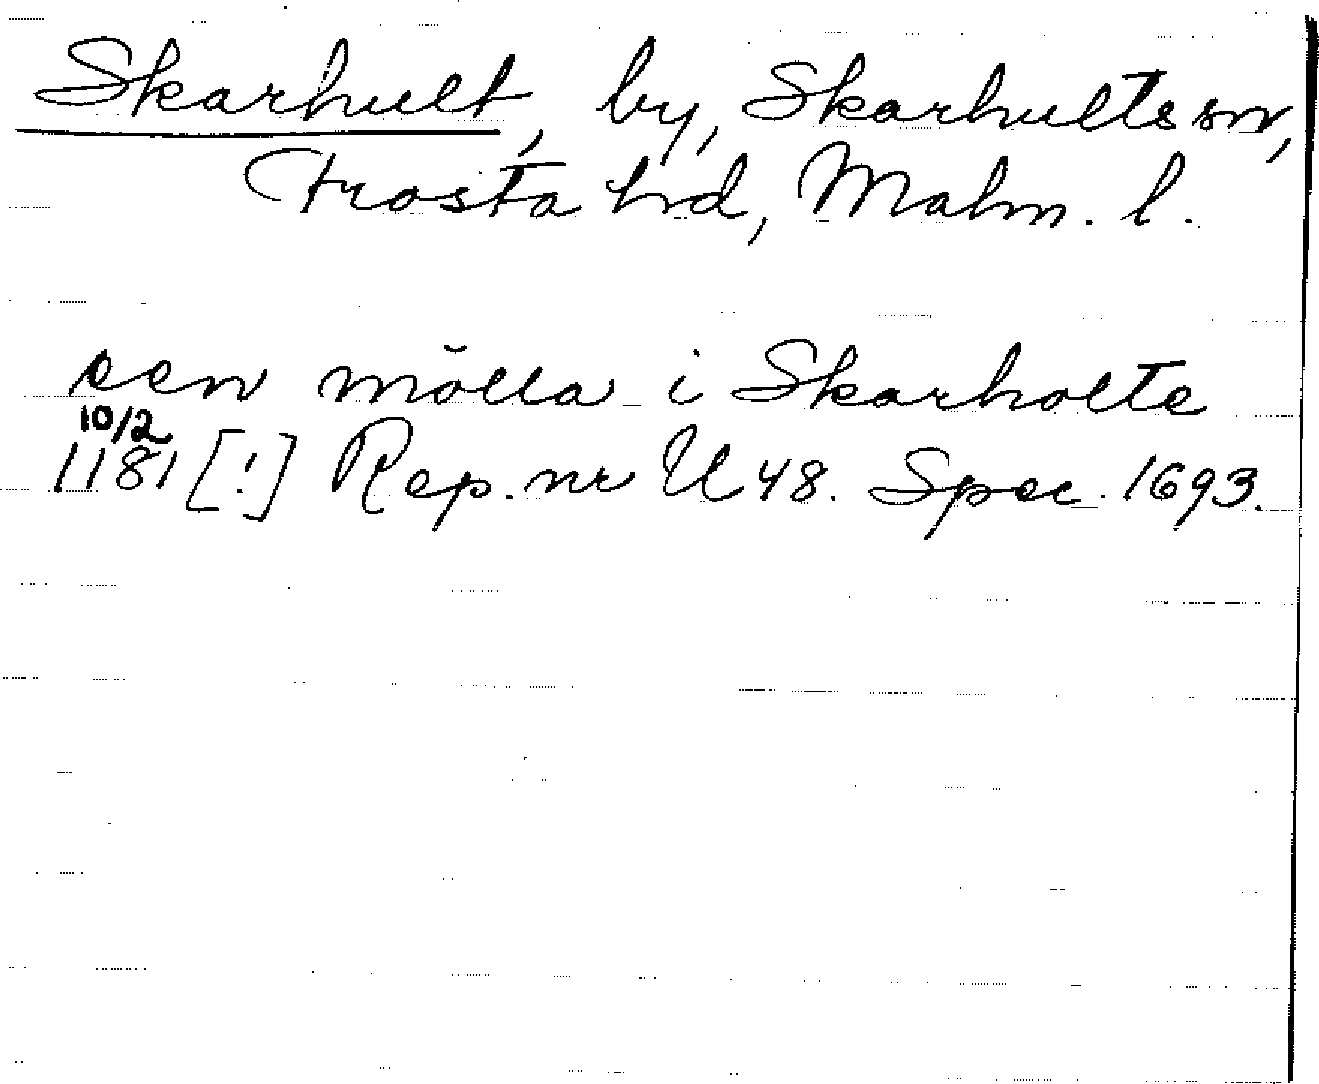 Skarhult, by, Skarhults sn,
Frosta hd, Malm. l.
een mölla i Skarholte
10/2
1181 [!] Rep. nr U 48. Spec. 1693.